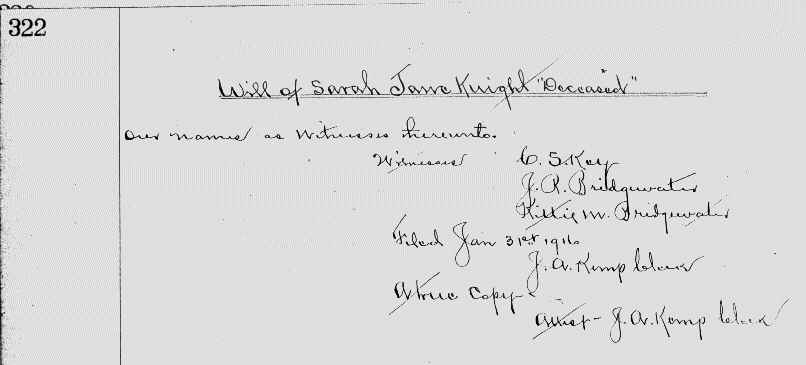 322
Will of Sarah Jane Knight "Deceased"
our names as witnesses hereunto.
Witnesses C. S. Key
J. R. Bridgewater
Kittie M. Bridgewater
Filed Jan 31st 1916
J. A. Kemp Clerk
A true Copy
Attest - J. A. Kemp Clerk